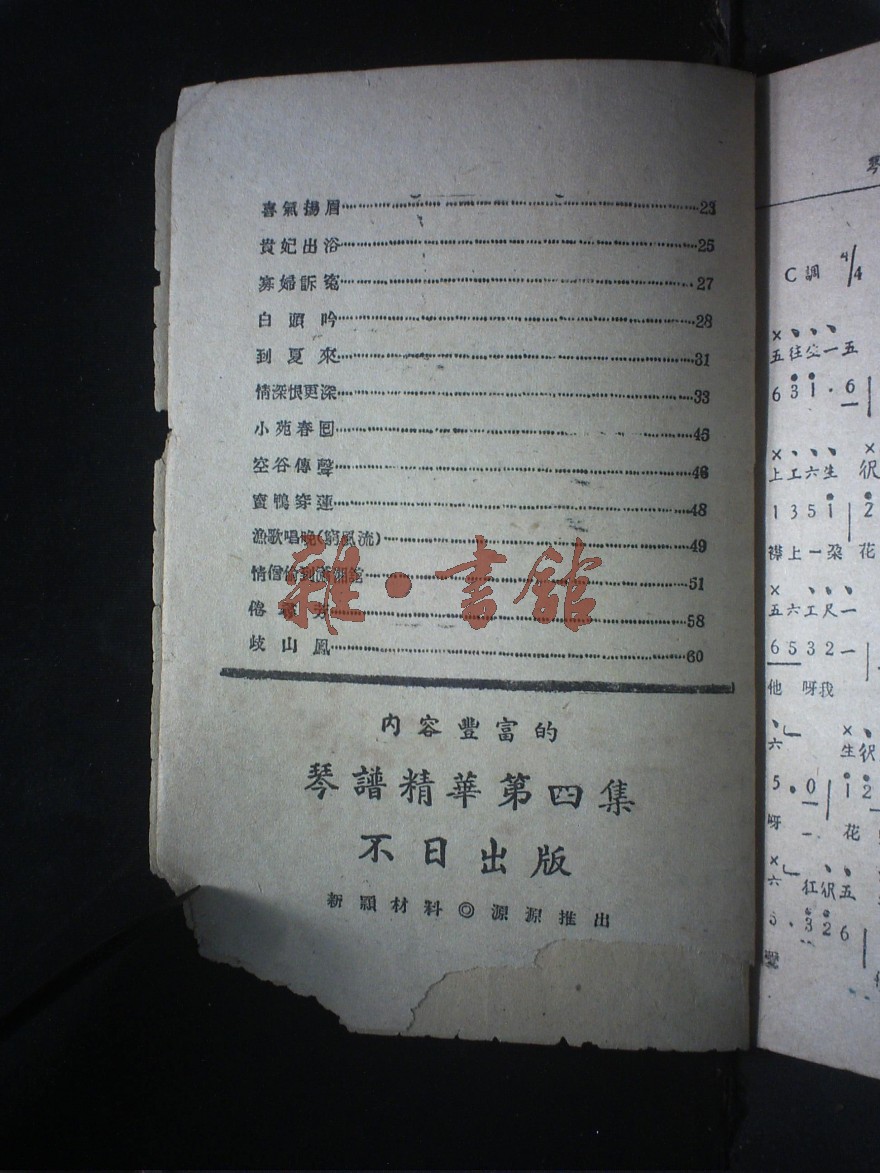 喜氣揚眉 23
貴妃出浴 25
寡婦訴冤 27
白頭吟 28
到夏來 31
情深恨更深 33
小苑春囘 45
空谷傳聲 46
蜜鴨穿蓮 48
漁歌唱晚(窮風流) 49
情僧偷到瀟湘舘 51
倦尋芳 58
歧山鳳 60
内容豐富的
琴譜精華第四集
不日出版
新穎材料◎源源推出
雜·書館
琴
C調 4/4
五往㘴一五
6 3 1 · 6
上工六生 伬
1 3 5 1 2
襟上一朶 花
五六工尺一
6 5 3 2 一
他 呀我
六 生伬
5 · 0 1 2
呀 一 花
六 仜伬五
5 · 3 2 6